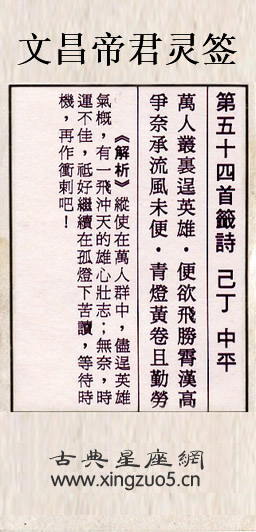 文昌帝君灵签
第五十四首籤詩 己丁 中平
萬人叢裏逞英雄・便欲飛勝霄漢高
爭奈承流風未便・青燈黃卷且勤勞
《解析》縱使在萬人群中,儘逞英雄
氣概,有一飛沖天的雄心壯志;無奈,時
運不佳,祗好繼續在孤燈下苦讀,等待時
機,再作衝刺吧!
古典星座網
www.xingzuo5.cn